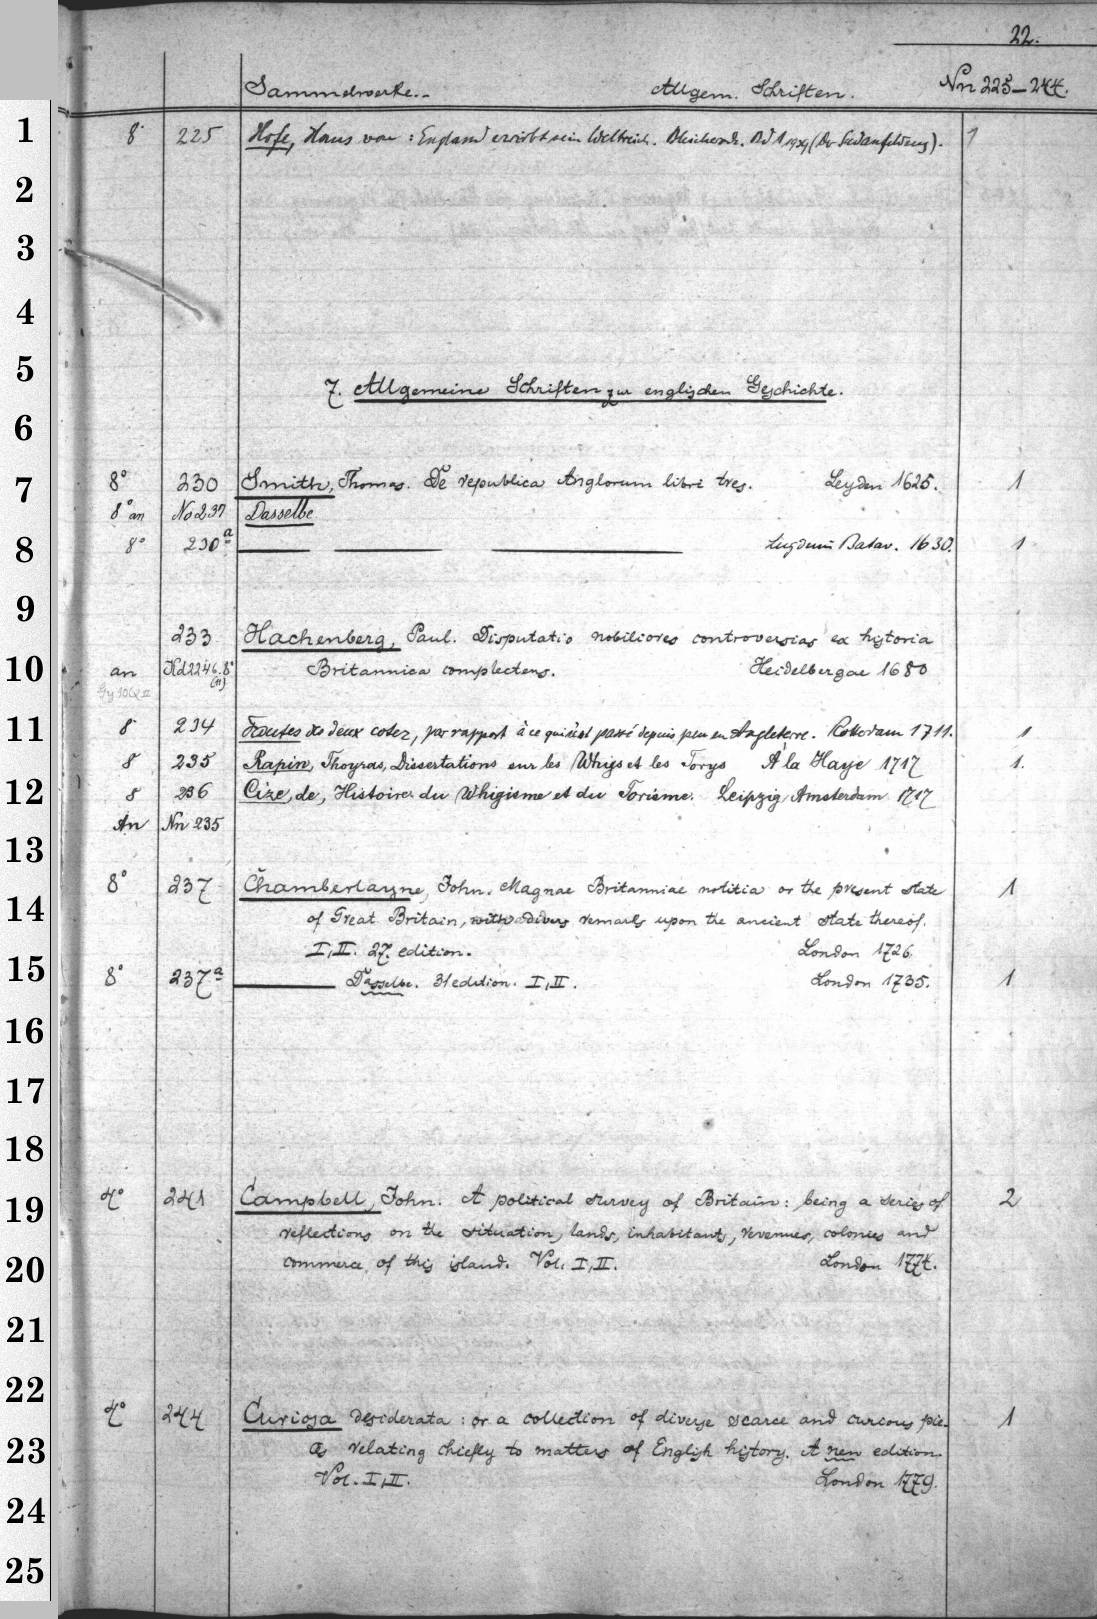 22.
Sammelwerke. Allgem. Schriften. Nn 225–244.
1 8° 225 Hofe, Hans von: England erwirbt sein Weltreich. Bd 1 1939 1
2
3
4
5
7. Allgemeine Schriften zur englischen Geschichte.
6
7 8° 230 Smith, Thomas. De republica Anglorum libri tres. Leyden 1625. 1
8° an No 237 Dasselbe
8 8° 230a — — — Lugduni Batav. 1630. 1
9
233 Hachenberg, Paul. Disputatio nobiliores controversias ex historia
10 an Kd 2246.8° (11) Britannica complectens. Heidelbergae 1680
11 8° 234 des deux cotez, par rapport à ce qui s'est passé depuis peu en Angleterre. Rotterdam 1711. 1
8 235 Rapin, Thoyras, Dissertations sur les Whigs et les Torys A la Haye 1717 1.
12 8 236 Cize, de, Histoire du Whigisme et du Torisme. Leipzig, Amsterdam 1717
An Nn 235
13
8° 237 Chamberlayne, John. Magnae Britanniae notitia or the present state 1
14 of Great Britain, with divers remarks upon the ancient state thereof.
I, II. 27. edition. London 1726.
15 8° 237a — Dasselbe. 31 edition. I, II. London 1735. 1
16
17
18
19 4° 241 Campbell, John. A political survey of Britain: being a series of 2
reflections on the situation, lands, inhabitants, revenues, colonies and
20 commerce of this island. Vol. I, II. London 1774.
21
22
4° 244 Curiosa desiderata: or a collection of diverse scarce and curious pie- 1
23 ces relating chiefly to matters of English history. A new edition.
Vol. I, II. London 1779.
24
25